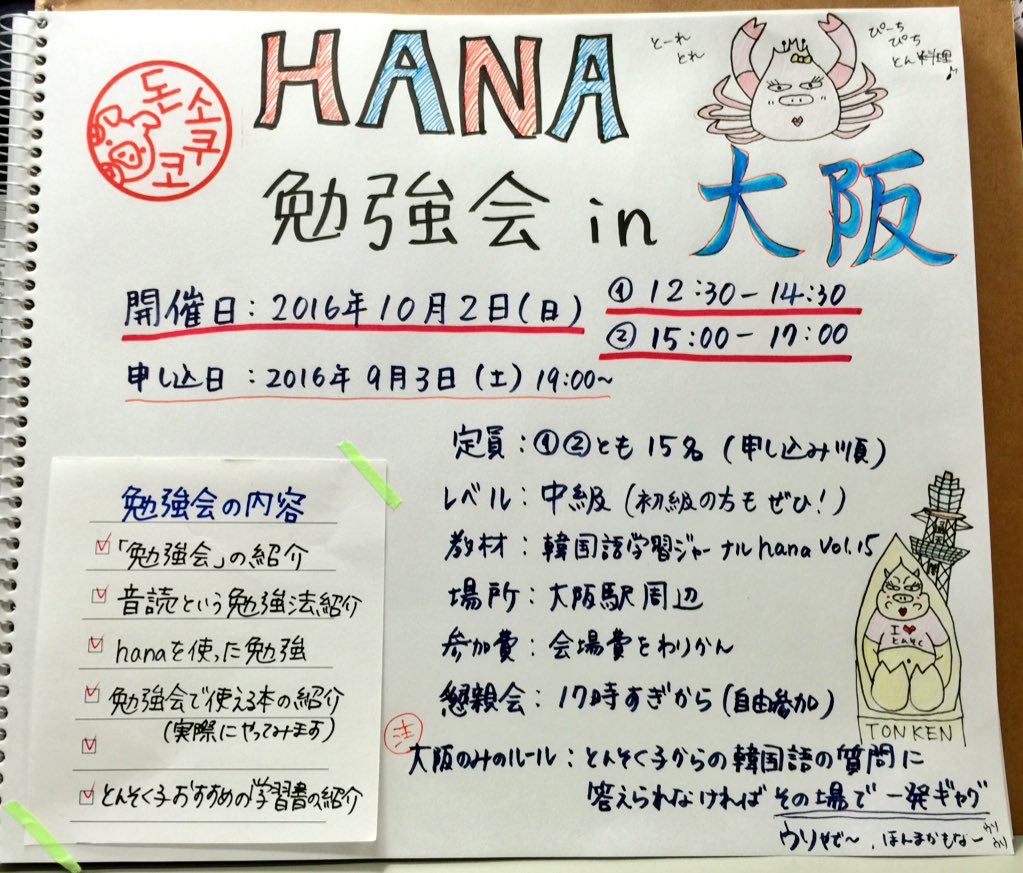 HANA
とーれ
とれ
ぴーち
ぴち
とん料理♪
돈소쿠코
勉強会 in 大阪
開催日：2016年10月2日(日)
① 12:30－14:30
② 15:00－17:00
申し込日：2016年9月3日(土) 19:00~
定員：①②とも15名（申し込み順）
レベル：中級（初級の方もぜひ！）
教材：韓国語学習ジャーナルhana Vol.15
場所：大阪駅周辺
参加費：会場費をわりかん
懇親会：17時すぎから（自由参加）
注
大阪のみのルール：とんそく子からの韓国語の質問に
答えられなければその場で一発ギャグ
ウリやで～、ほんまかもなー
ウリ
ウリ
勉強会の内容
☑「勉強会」の紹介
☑ 音読という勉強法紹介
☑ hanaを使った勉強
☑ 勉強会で使える本の紹介
（実際にやってみます）
☑
☑ とんそく子おすすめの学習書の紹介
I ♥
とんそく
TONKEN